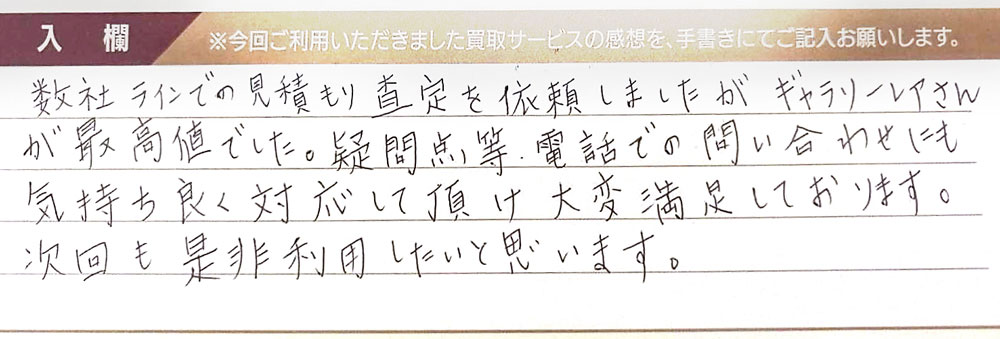 入 欄
※今回ご利用いただきました買取サービスの感想を、手書きにてご記入お願いします。
数社ラインでの見積もり査定を依頼しましたがギャラリーレアさん
が最高値でした。疑問点等、電話での問い合わせにも
気持ち良く対応して頂け大変満足しております。
次回も是非利用したいと思います。